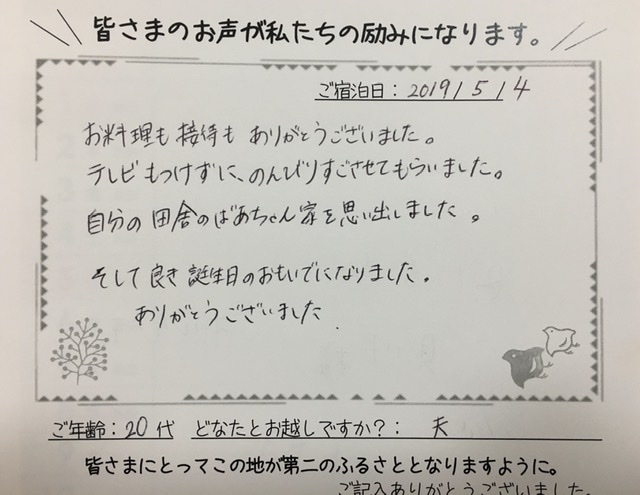 皆さまのお声が私たちの励みになります。
ご宿泊日：2019/5/14
お料理も接待も ありがとうございました。
テレビもつけずに、のんびりすごさせてもらいました。
自分の田舎のばあちゃん家を思い出しました。
そして良き誕生日のおもいでになりました。
ありがとうございました
ご年齢：20代 どなたとお越しですか？： 夫
皆さまにとってこの地が第二のふるさととなりますように。
ご記入ありがとうございました。